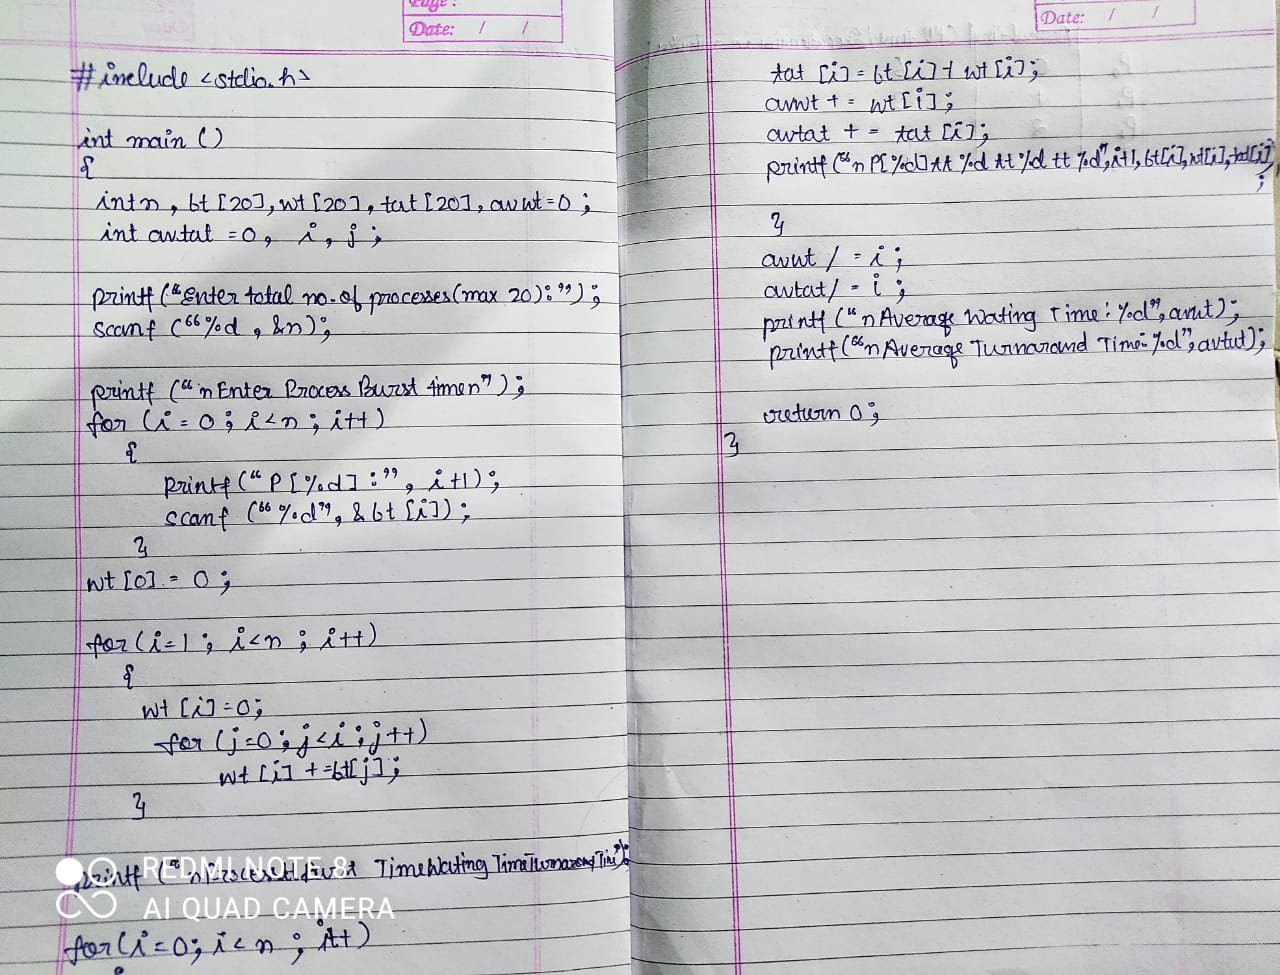 Page:
Date: / /
#include <stdio.h>
int main ()
{
int n, bt [20], wt [20], tat [20], avwt = 0 ;
int avtat = 0, i, j ;
printf ("Enter total no. of processes (max 20): ") ;
scanf ("%d , &n) ;
printf ("n Enter Process Burst timen") ;
for (i = 0 ; i < n ; i++)
{
printf (" P [%d] :", i +1) ;
scanf ("%d", & bt [i]) ;
}
wt [0] = 0 ;
for (i=1 ; i < n ; i++)
{
wt [i] = 0 ;
for (j=0 ; j < i ; j++)
wt [i] += bt[j] ;
}
printf ("n Time Wating Time
for (i = 0 ; i < n ; i++)
REDMI NOTE 8
AI QUAD CAMERA
Date: / /
tat [i] = bt [i] + wt [i] ;
avwt += wt [i] ;
avtat += tat [i] ;
printf ("n P[%d] tt %d tt %d tt %d", i+1, bt[i], wt[i], tat[i])
;
}
avwt / = i ;
avtat / = i ;
printf ("n Average Wating Time : %d", avwt) ;
printf ("n Average Turnaround Time: %d", avtat) ;
return 0 ;
}